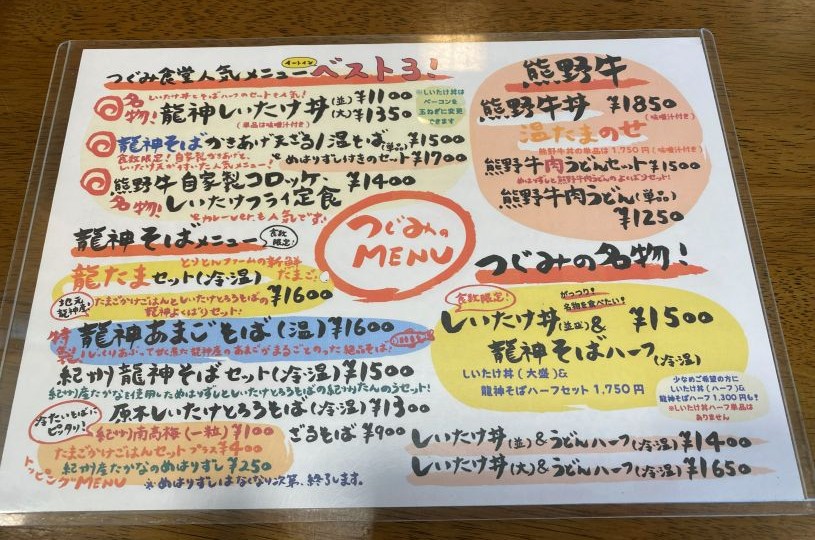 つぐみ食堂人気メニュー イートイン ベスト3!
しいたけ丼とそばハーフのセットも人気!
名物! 龍神しいたけ丼(並)¥1100
(大)¥1350
(単品は味噌汁付き)
※しいたけ丼は
ベーコンを
玉ねぎに変更
できます
龍神そばかきあげ天ざる/温そば(単品)¥1500
食数限定!自家製かきあげと、
しいたけ天がすいた人気メニュー!
めはりずしけきのセット¥1700
熊野牛自家製コロッケ、¥1400
名物! しいたけフライ定食
カレーver.も人気です!
龍神そばメニュー 食数限定!
とりとんファームの新鮮たまご!
龍たまセット(冷温)
¥1600
地元龍神産! たまごかけごはんとしいたけとろろそばの
龍神よくばりセット!
特製! 龍神あまごそば(温)¥1600
じっくりあぶって甘く煮た龍神産のあまごがまるごとのった絶品そば!
紀州龍神そばセット(冷温)¥1500
紀州産たかなを使用しためはりずしとしいたけとろろそばの紀州たんのうセット!
冷たいそばにピッタリ! 原木しいたけとろろそば(冷温)¥1300
紀州南高梅(一粒)¥100 ざるそば¥900
たまごかけごはんセット プラス¥400
紀州産たかなのめはりずし¥250
トッピングMENU ※めはりずしはなくなり次第、終了します。
つぐみのMENU
熊野牛
熊野牛丼 ¥1850
(味噌汁付き)
温たまのせ
熊野牛丼の単品は1,750円(味噌汁付き)
熊野牛肉うどんセット¥1500
めはりずしと熊野牛肉うどんのよくばりセット!
熊野牛肉うどん(単品)
¥1250
つぐみの名物!
食数限定! がっつり!名物を食べたい!
しいたけ丼(並盛)& ¥1500
龍神そばハーフ(冷温)
しいたけ丼(大盛)&
龍神そばハーフセット 1,750円
少なめご希望の方に
しいたけ丼(ハーフ)&
龍神そばハーフ1,300円も!
※しいたけ丼ハーフ単品は
ありません
しいたけ丼(並)&うどんハーフ(冷温)¥1400
しいたけ丼(大)&うどんハーフ(冷温)¥1650